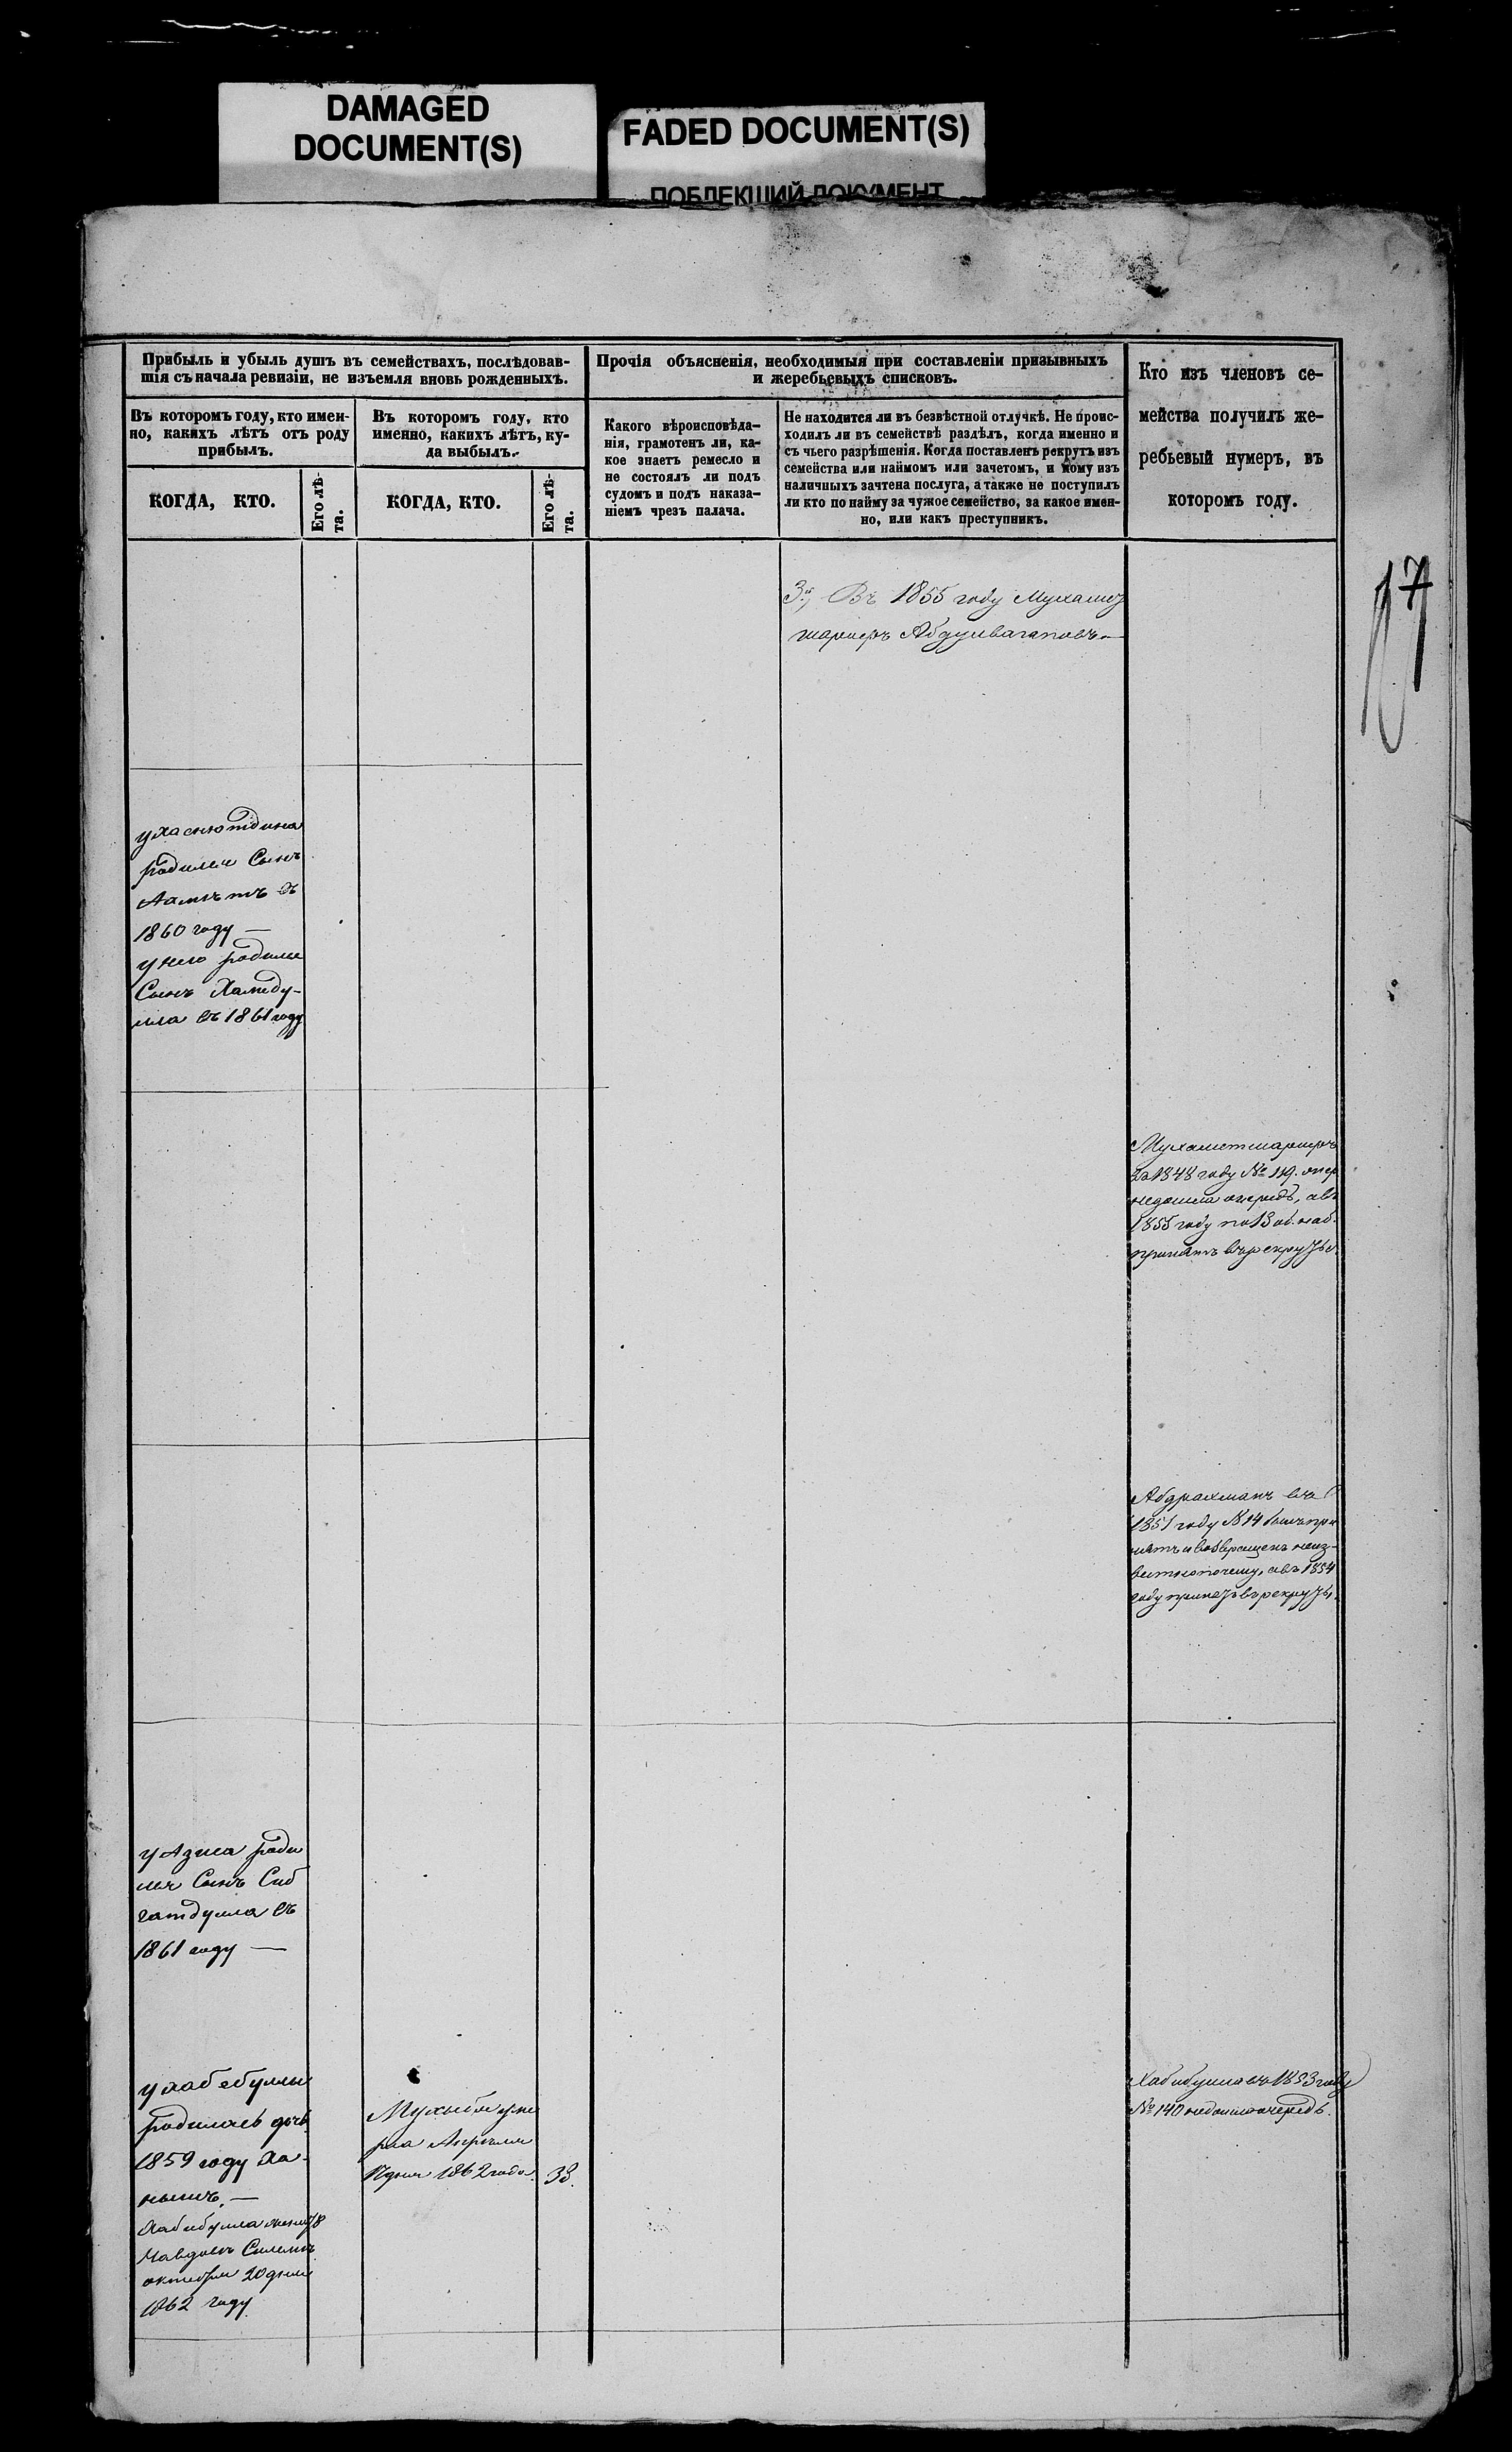 DAMAGED
DOCUMENT(S)
FADED DOCUMENT(S)
ПОБЛЕКШИЙ ДОКУМЕНТ
Прибыль и убыль душъ въ семействахъ, послѣдовав-
шія съ начала ревизіи, не изъемля вновь рожденныхъ.
Въ которомъ году, кто имен-
но, какихъ лѣтъ отъ роду
прибылъ.
Въ которомъ году, кто
именно, какихъ лѣтъ, ку-
да выбылъ.
КОГДА, КТО.
Его лѣ-
та.
КОГДА, КТО.
Его лѣ-
та.
Прочія объясненія, необходимыя при составленіи призывныхъ
и жеребьевыхъ списковъ.
Какого вѣроисповѣда-
нія, грамотенъ ли, ка-
кое знаетъ ремесло и
не состоялъ ли подъ
судомъ и подъ наказа-
ніемъ чрезъ палача.
Не находится ли въ безвѣстной отлучкѣ. Не проис-
ходилъ ли въ семействѣ раздѣлъ, когда именно и
съ чьего разрѣшенія. Когда поставленъ рекрутъ изъ
семейства или наймомъ или зачетомъ, и кому изъ
наличныхъ зачтена послуга, а также не поступилъ
ли кто по найму за чужое семейство, за какое имен-
но, или какъ преступникъ.
Кто изъ членовъ се-
мейства получилъ же-
ребьевый нумеръ, въ
которомъ году.
Въ 1855 году Мухамет
шарипъ Абдулвагаповъ
у Хаснютдина
родился Сынъ
въ
1860 году —
у него родился
Сынъ Хамиду-
лла въ 1861 году
Мухаметшарипъ
1848 году № 119.
недошла очередь, а въ
1855 году по 13
принятъ въ рекруты
Абдрахманъ въ
1851 году № 14 былъ при
нятъ и возвращенъ неиз-
вестно почему, а въ 1854
году принятъ в рекруты.
у Азиса роди
лся Сынъ Сиб
гатдулла въ
1861 году —
у Хабебуллы
родилась дочь
1859 году Ха-
Хабибулла
октября 20 дня
1862 году
Апреля
дня 1862 года. 33.
Хабибулла въ 1853 году
№ 140 недошла очередь.